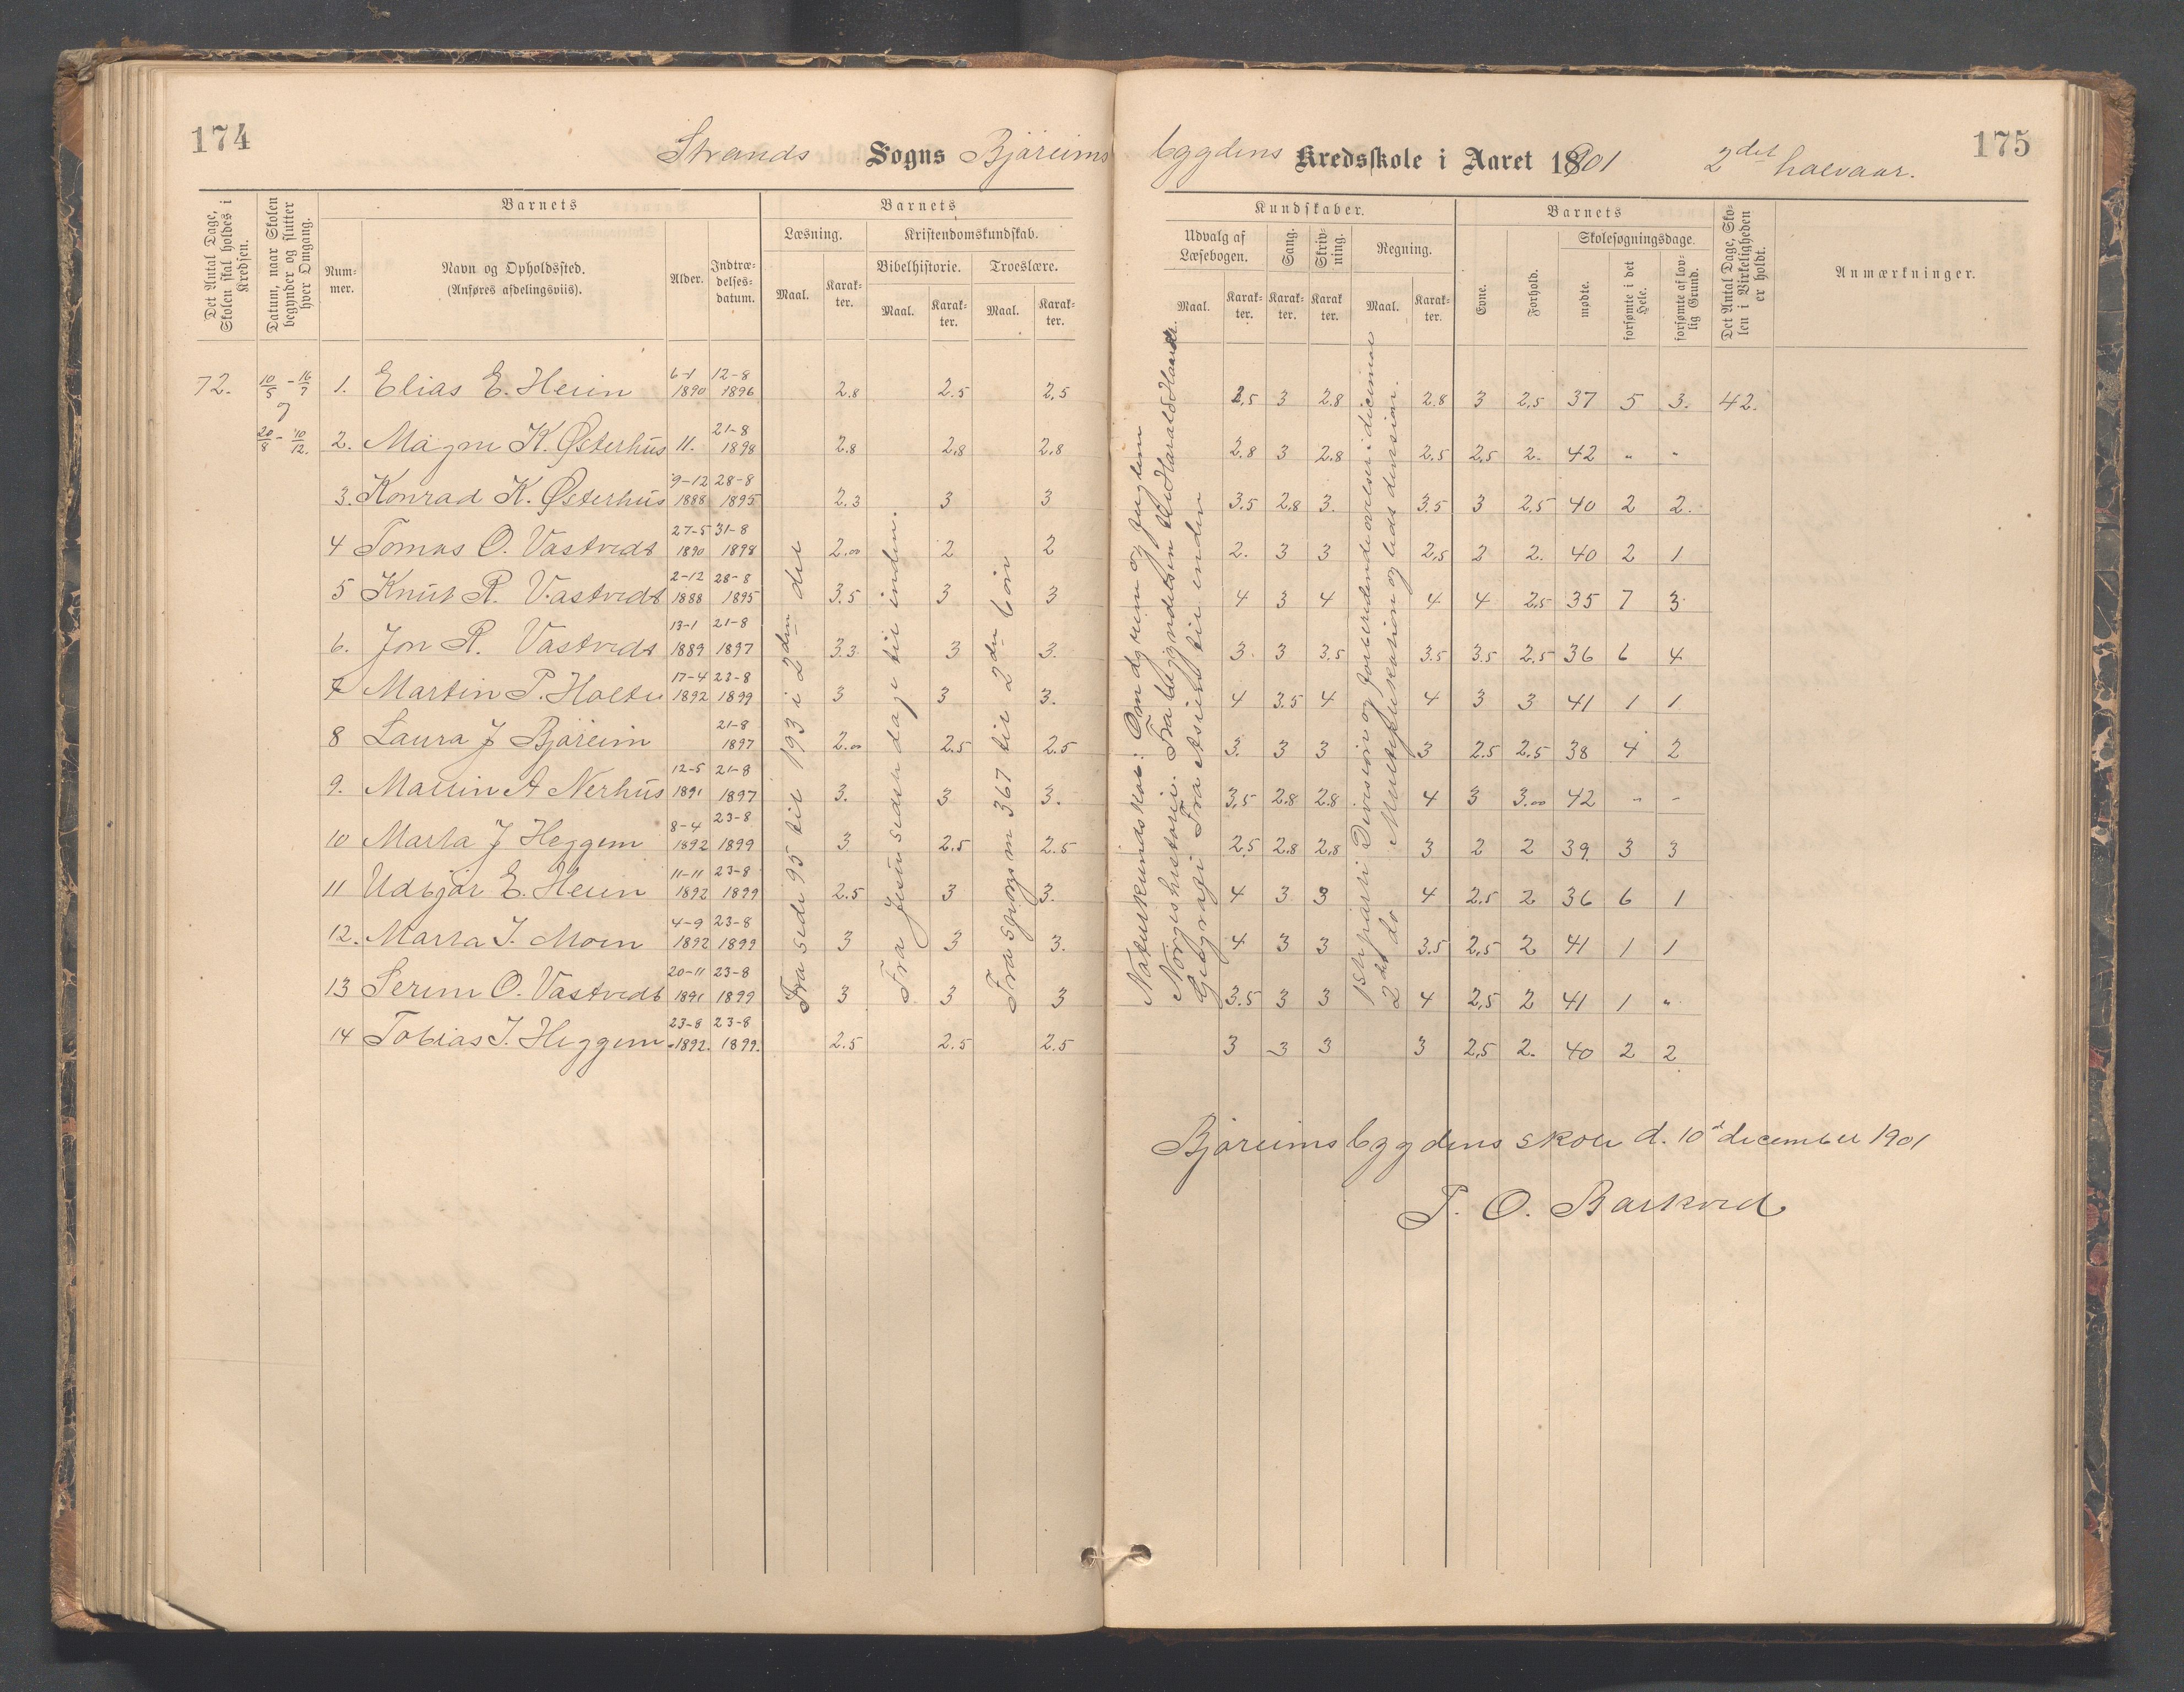 174
Strands Sogns Bjåreims
bygdens Kredsskole i Aaret 1901 2det halvaar.
175
Det Antal Dage, Skolen skal holdes i Kredsen.
Datum, naar Skolen begynder og slutter hver Omgang.
Barnets
Nummer.
Navn og Opholdssted.
(Anføres afdelingsviis).
Alder.
Indtrædelsesdatum.
Barnets
Læsning.
Maal. Karakter.
Kristendomskundskab.
Bibelhistorie. Troeslære.
Maal. Karakter. Maal. Karakter.
Kundskaber.
Udvalg af Læsebogen.
Maal. Karakter.
Sang.
Karakter.
Skrivning.
Karakter
Regning.
Maal. Karakter.
Barnets
Evne.
Forhold.
Skolesøgningsdage.
mødte.
forsømte i det Hele.
forsømte af lovlig Grund.
Det Antal Dage, Skolen i Virkeligheden er holdt.
Anmærkninger.
72. 10/5 - 16/7 1. Elias E. Heiin 6-1 1890 12-8 1896 2.8 2.5 2,5 2,5 3 2.8 2.8 3 2,5 37 5 3. 42.
og
20/8 - 10/12. 2. Magne K. Østerhus 11. 21-8 1898 2.8 2.8 2.8 2.8 3 2.8 2,5 2,5 2. 42 " "
3. Konrad K. Østerhus 9-12 1888 28-8 1895 2.3 3 3 3.5 2.8 3. 3.5 3 2,5 40 2 2.
4 Tomas O. Vastvedt 27-5 1890 31-8 1898 2.00 2 2 2. 3 3 2,5 2 2. 40 2 1
5 Knut R. Vastvedt 2-12 1888 28-8 1895 3.5 3 3 4 3 4 4 4 2,5 35 7 3
6. Jon R. Vastvedt 13-1 1889 21-8 1897 3.3 3 3. 3. 3 3.5 3.5 3.5 2,5 36 6 4
7 Martin P. Holte 17-4 1892 23-8 1899 3 3 3. 4 3.5 4 4 3 3 41 1 1
8 Laura J Bjåreim 21-8 1897 2.00 2.5 2.5 3. 3 3 3 2.5 2,5 38 4 2
9. Mallin A Nerhus 12-5 1891 21-8 1897 3. 3 3. 3,5 2.8 2.8 4 3 3.00 42 - -
10 Marta J Heggem 8-4 1892 23-8 1899 3 2.5 2.5 2,5 2.8 2,8 3 2 2 39 3 3
11 Udbjør E. Heiin 11-11 1892 23-8 1899 2.5 3 3. 4 3 3 4 2,5 2 36 6 1
12. Marta I. Moen 4-9 1892 23-8 1899 3 3 3. 4 3 3 3.5 2,5 2 41 1 1
13 Serine O. Vastvedt 20-11 1891 23-8 1899 3 3 3 3.5 3 3 4 2,5 2 41 1 "
14 Tobias I. Heggem 23-8 1892. 23-8 1899. 2.5 2.5 2.5 3 3 3 3 2,5 2. 40 2 2
Fra side 95 til 193 i 2den del
Fra Jesu sidste dage til enden.
Fra spørgsm 367 til 2den bøn
Naturkundskab: Om dyrene og fuglene
Norgeshistorie. Fra begyndelsen til Harald Haarde.
Geografi Fra Asien til enden
1ste parti Division og forberedende øvelser i decimal
2det do Multiplikation og lidt division.
Bjåreimsbygdens skole d. 10de december 1901
T. O. Barkved